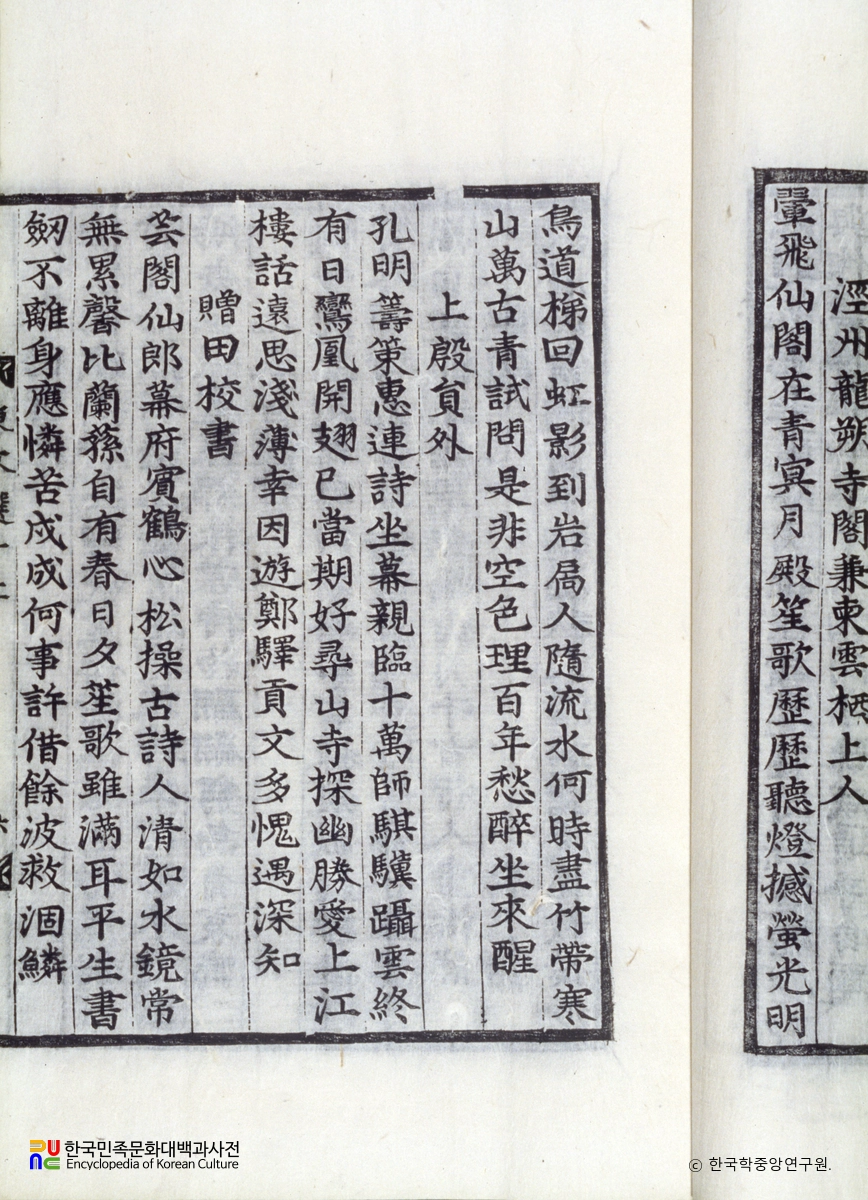 涇州龍朔寺閣兼柬雲栖上人
翬飛仙閣在青冥月殿笙歌歷歷聽燈撼螢光明
鳥道梯回虹影到岩扃人隨流水何時盡竹帶寒
山萬古青試問是非空色理百年愁醉坐來醒
上殷員外
孔明籌策惠連詩坐幕親臨十萬師騏驥躡雲終
有日鸞凰開翅已當期好尋山寺探幽勝愛上江
樓話遠思淺薄幸因遊鄭驛貢文多愧遇深知
贈田校書
芸閣仙郎幕府賓鶴心松操古詩人清如水鏡常
無累馨比蘭蓀自有春日夕笙歌雖滿耳平生書
劒不離身應憐苦戍成何事許借餘波救涸鱗
한국민족문화대백과사전
Encyclopedia of Korean Culture
ⓒ 한국학중앙연구원.